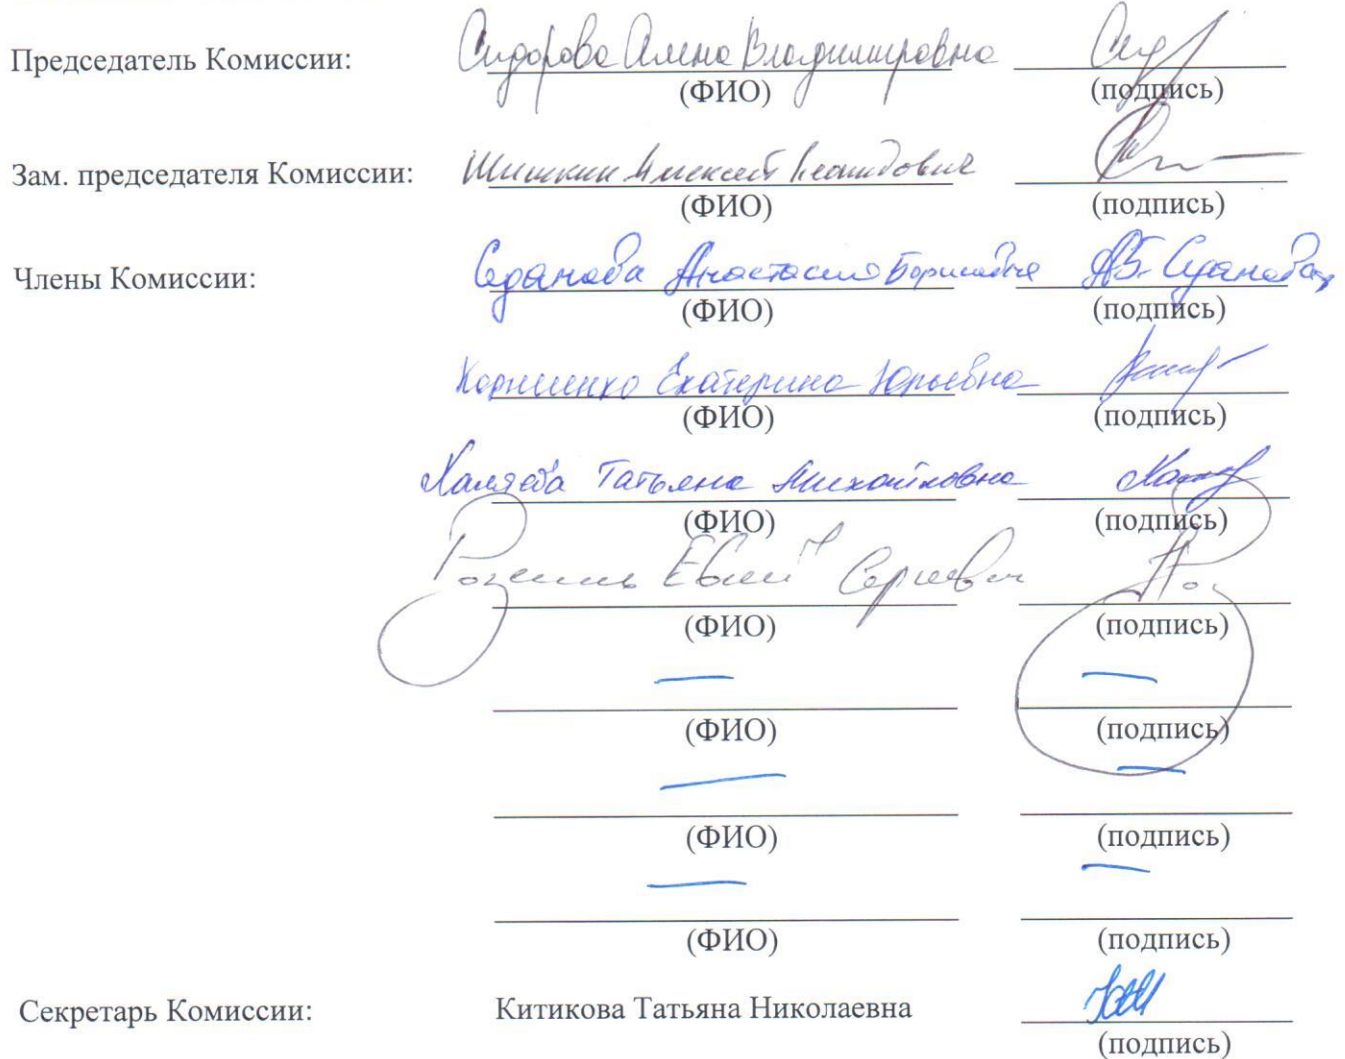 Председатель Комиссии: Сидорова Алена Владимировна
(ФИО) (подпись)
Зам. председателя Комиссии: Шишкин Алексей Леонидович
(ФИО) (подпись)
Члены Комиссии: Седанова Анастасия Борисовна А.Б. Седанова
(ФИО) (подпись)
Корниенко Екатерина Юрьевна
(ФИО) (подпись)
Татьяна Михайловна
(ФИО) (подпись)
Сергеевич
(ФИО) (подпись)
(ФИО) (подпись)
(ФИО) (подпись)
(ФИО) (подпись)
Секретарь Комиссии: Китикова Татьяна Николаевна
(подпись)